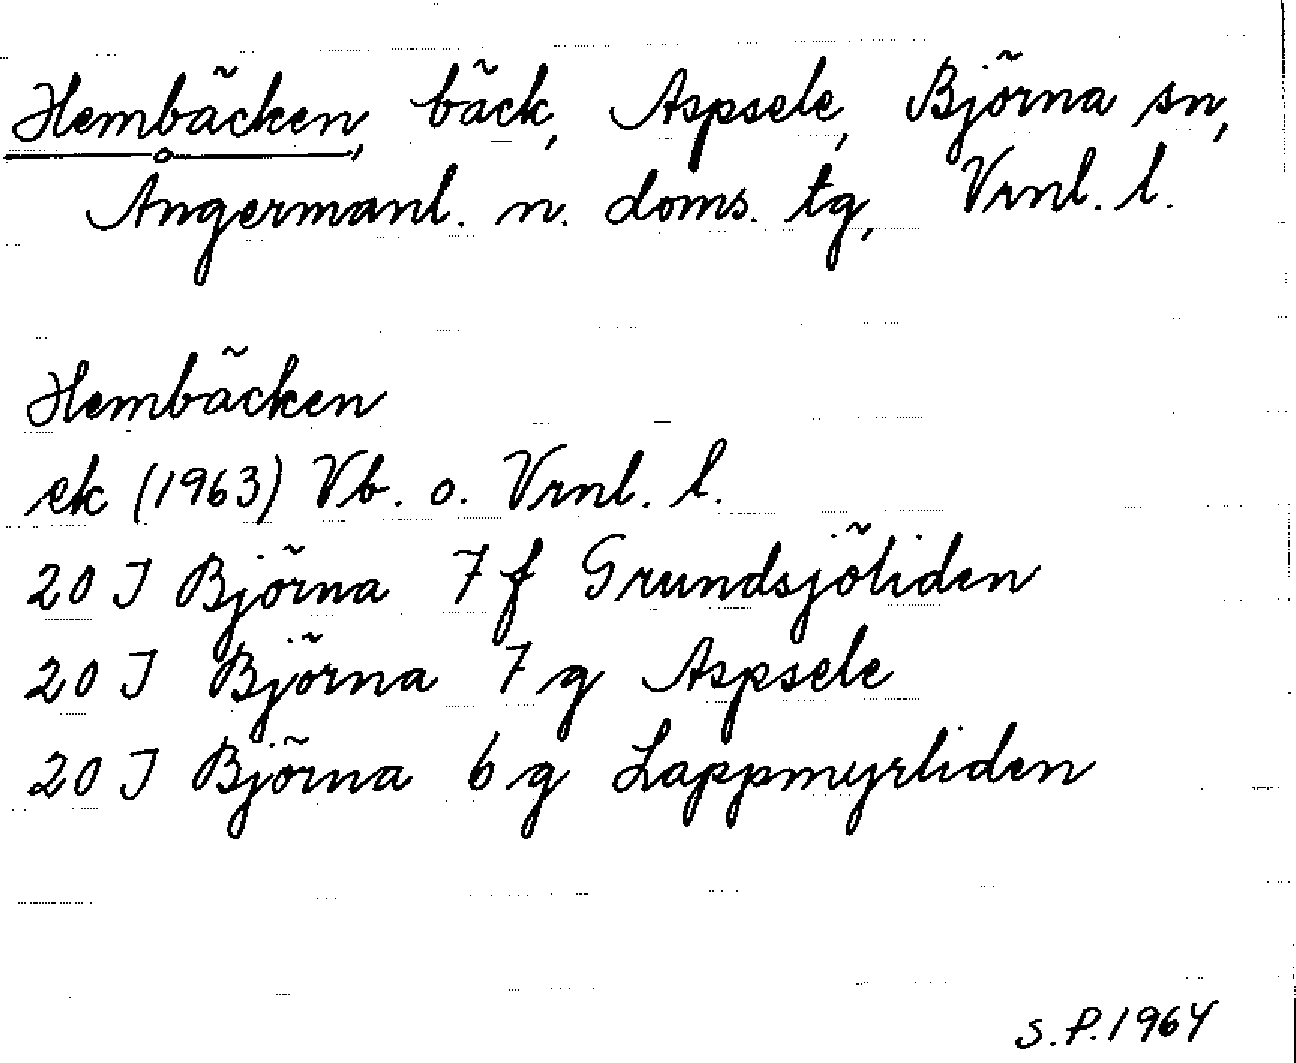 Hembäcken, bäck, Aspsele, Björna sn,
Ångermanl. n. doms. tg, Vrnl. l.
Hembäcken
ek (1963) Vb. o. Vrnl. l.
20 J Björna 7 f Grundsjöliden
20 J Björna 7 g Aspsele
20 J Björna 6 g Lappmyrliden
S.P. 1964